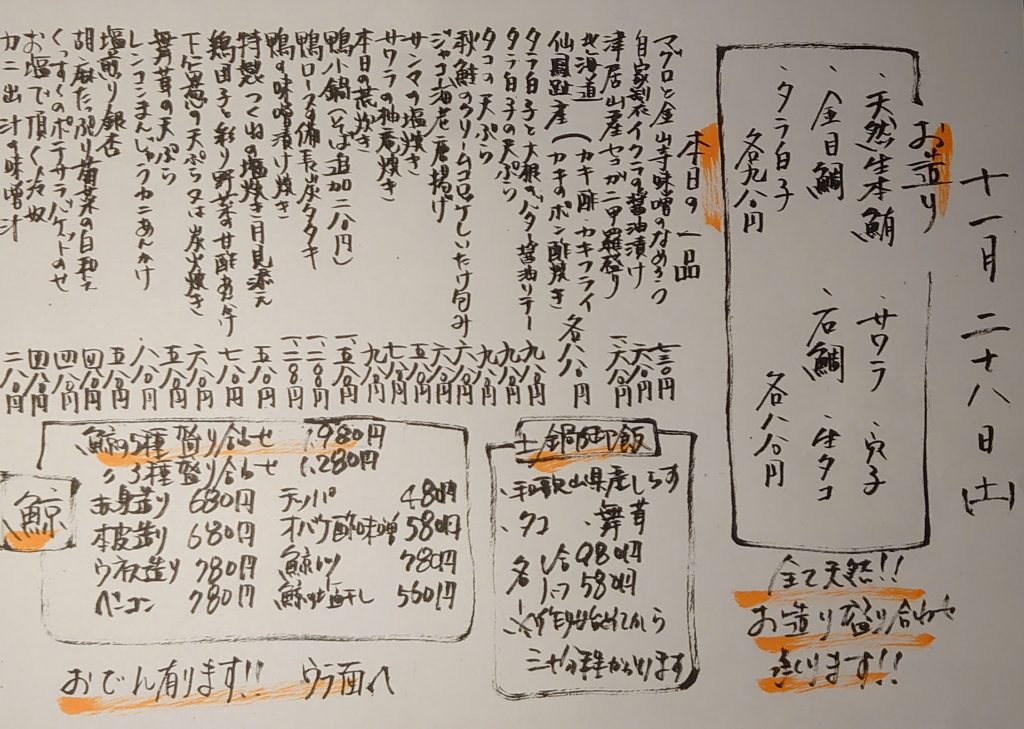 十一月二十八日(土)
お造り
・天然生本鮪 ・サワラ ・穴子
・金目鯛 ・石鯛 ・生タコ
・タラ白子 各八八〇円
各九八〇円
全て天然!!
お造り盛り合わせ
きります!!
本日の一品
マグロと金山寺味噌のなめろう 七三〇円
自家製イクラの醤油漬け 六八〇円
津居山産セコガニ甲羅盛り 一、六八〇円
(北海道)
仙鳳趾産(カキ酢・カキフライ
カキのポン酢焼き 各八八〇円
タラ白子と大根のバター醤油ソテー 九八〇円
タラ白子の天ぷら 九八〇円
タコの天ぷら 九八〇円
秋鮭のクリームコロッケしいたけ包み 六八〇円
ジャコ海老唐揚げ 六八〇円
サンマの塩焼き 五八〇円
サワラの柚庵焼き 七八〇円
本日の荒炊き 九八〇円
鴨小鍋(そば追加二八〇円) 一、五八〇円
鴨ロースの備長炭タタキ 一、二八〇円
鴨の味噌漬け焼き 一、二八〇円
特製つくねの塩焼き月見添え 五八〇円
鶏団子と彩り野菜の甘酢あんかけ 七八〇円
下仁田葱の天ぷら又は炭火焼き 六八〇円
舞茸の天ぷら 五八〇円
レンコンまんじゅうカニあんかけ 八八〇円
塩煎り銀杏 五八〇円
胡麻たっぷり菊菜の白和え 四八〇円
くんすくのポテサラバゲットのせ 四八〇円
お塩で頂く冷奴 四八〇円
カニ出汁の味噌汁 二八〇円
土鍋御飯
・和歌山県産しらす
・タコ ・舞茸
各 1合980円
ハーフ580円
鯨
鯨の5種盛り合わせ 1,980円
〃3種盛り合わせ 1,280円
赤身造り 680円 テッパ 480円
本皮造り 680円 オバケ酢味噌 580円
ウネス造り 780円 鯨カツ 780円
ベーコン 780円 鯨の塩干し 580円
おでん有ります!! ウラ面へ